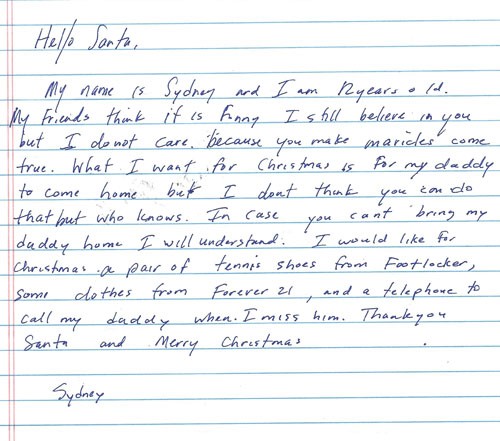 Hello Santa,
My name is Sydney and I am 12 years old.
My friends think it is funny I still believe in you
but I do not care. because you make maricles come
true. What I want for Christmas is for my daddy
to come home. but I dont think you can do
that but who knows. In case you cant bring my
daddy home I will understand. I would like for
Christmas a pair of tennis shoes from Footlocker,
some clothes from Forever 21, and a telephone to
call my daddy when I miss him. Thank you
Santa and Merry Christmas.
Sydney